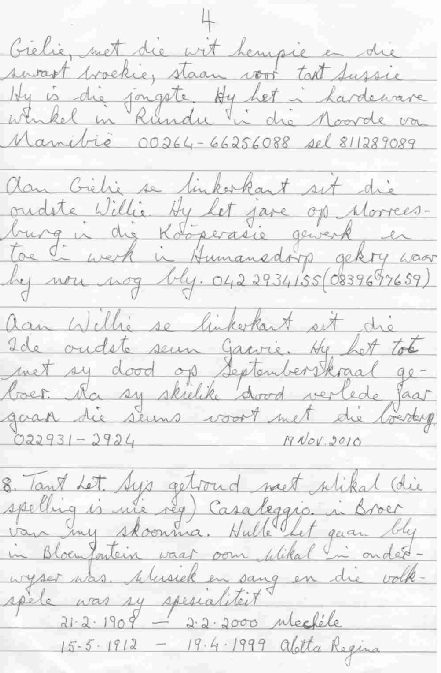 4
Gielie, met die wit hempie en die
swart broekie, staan voor tant Sussie
Hy is die jongste. Hy het 'n hardeware
winkel in Rundu in die Noorde van
Namibië 00264-66256088 sel 811289089
Aan Gielie se linkerkant sit die
oudste Willie. Hy het jare op Morrees-
burg in die Koöperasie gewerk en
toe 'n werk in Humansdorp gekry waar
hy nou nog bly. 042 2934155 (0839697659)
Aan Willie se linkerkant sit die
2de oudste seun Gawie. Hy het tot
met sy dood op Septemberskraal ge-
boer. Na sy skielike dood verlede jaar
gaan die seuns voort met die boerdery
022931-2924 19 Nov. 2010
8. Tant Let. Sys getroud met Mikal (die
spelling is nie reg) Casaleggio. 'n Broer
van my skoonma. Hulle het gaan bly
in Bloemfontein waar oom Mikal 'n onder-
wyser was. Musiek en sang en die volk-
spele was sy spesialiteit
21·2·1909 — 2·2·2000 Mechéle
15·5·1912 — 19·4·1999 Aletta Regina